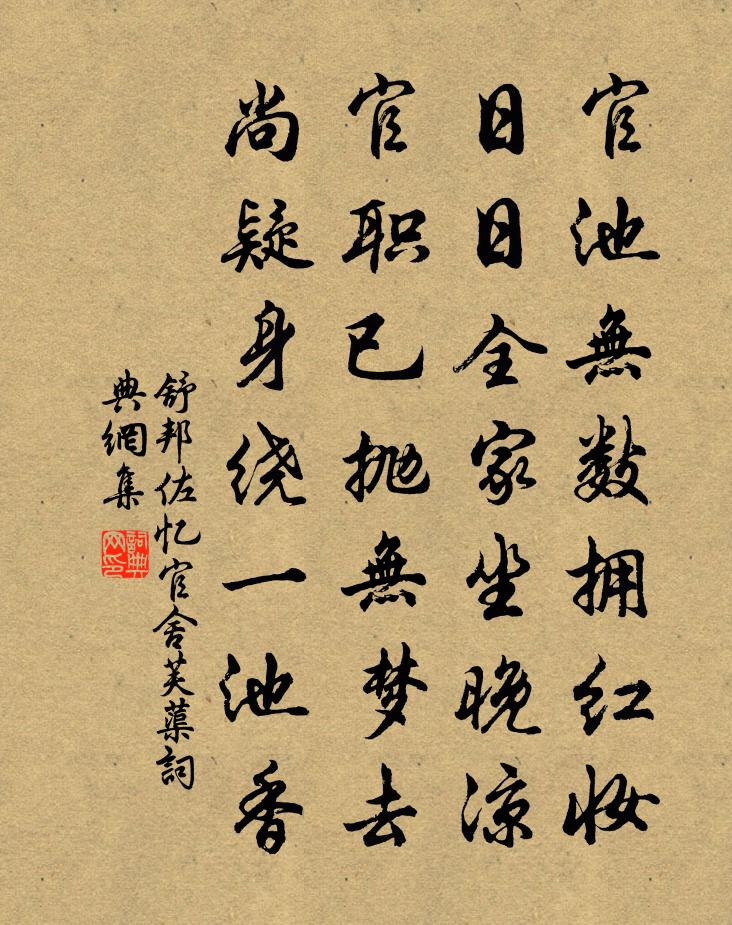 官池無数拥红妆
日日全家坐晚凉
官职已抛無梦去
尚疑身绕一池香
舒邦佐忆官舍芙蕖詞
典網集
詞典网印